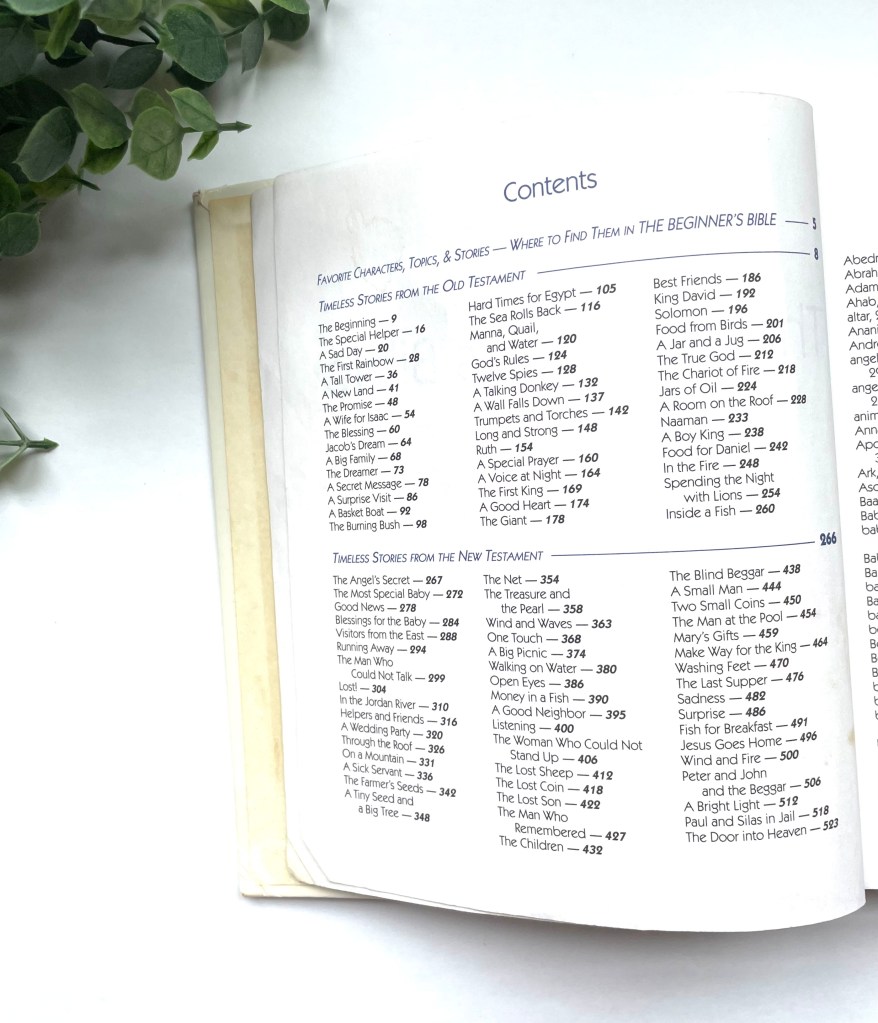 Contents
FAVORITE CHARACTERS, TOPICS, & STORIES — WHERE TO FIND THEM IN THE BEGINNER'S BIBLE — 5
TIMELESS STORIES FROM THE OLD TESTAMENT — 8
The Beginning — 9
The Special Helper — 16
A Sad Day — 20
The First Rainbow — 28
A Tall Tower — 36
A New Land — 41
The Promise — 48
A Wife for Isaac — 54
The Blessing — 60
Jacob's Dream — 64
A Big Family — 68
The Dreamer — 73
A Secret Message — 78
A Surprise Visit — 86
A Basket Boat — 92
The Burning Bush — 98
Hard Times for Egypt — 105
The Sea Rolls Back — 116
Manna, Quail,
and Water — 120
God's Rules — 124
Twelve Spies — 128
A Talking Donkey — 132
A Wall Falls Down — 137
Trumpets and Torches — 142
Long and Strong — 148
Ruth — 154
A Special Prayer — 160
A Voice at Night — 164
The First King — 169
A Good Heart — 174
The Giant — 178
Best Friends — 186
King David — 192
Solomon — 196
Food from Birds — 201
A Jar and a Jug — 206
The True God — 212
The Chariot of Fire — 218
Jars of Oil — 224
A Room on the Roof — 228
Naaman — 233
A Boy King — 238
Food for Daniel — 242
In the Fire — 248
Spending the Night
with Lions — 254
Inside a Fish — 260
TIMELESS STORIES FROM THE NEW TESTAMENT — 266
The Angel's Secret — 267
The Most Special Baby — 272
Good News — 278
Blessings for the Baby — 284
Visitors from the East — 288
Running Away — 294
The Man Who
Could Not Talk — 299
Lost! — 304
In the Jordan River — 310
Helpers and Friends — 316
A Wedding Party — 320
Through the Roof — 326
On a Mountain — 331
A Sick Servant — 336
The Farmer's Seeds — 342
A Tiny Seed and
a Big Tree — 348
The Net — 354
The Treasure and
the Pearl — 358
Wind and Waves — 363
One Touch — 368
A Big Picnic — 374
Walking on Water — 380
Open Eyes — 386
Money in a Fish — 390
A Good Neighbor — 395
Listening — 400
The Woman Who Could Not
Stand Up — 406
The Lost Sheep — 412
The Lost Coin — 418
The Lost Son — 422
The Man Who
Remembered — 427
The Children — 432
The Blind Beggar — 438
A Small Man — 444
Two Small Coins — 450
The Man at the Pool — 454
Mary's Gifts — 459
Make Way for the King — 464
Washing Feet — 470
The Last Supper — 476
Sadness — 482
Surprise — 486
Fish for Breakfast — 491
Jesus Goes Home — 496
Wind and Fire — 500
Peter and John
and the Beggar — 506
A Bright Light — 512
Paul and Silas in Jail — 518
The Door into Heaven — 523
Ahab,
Ark,